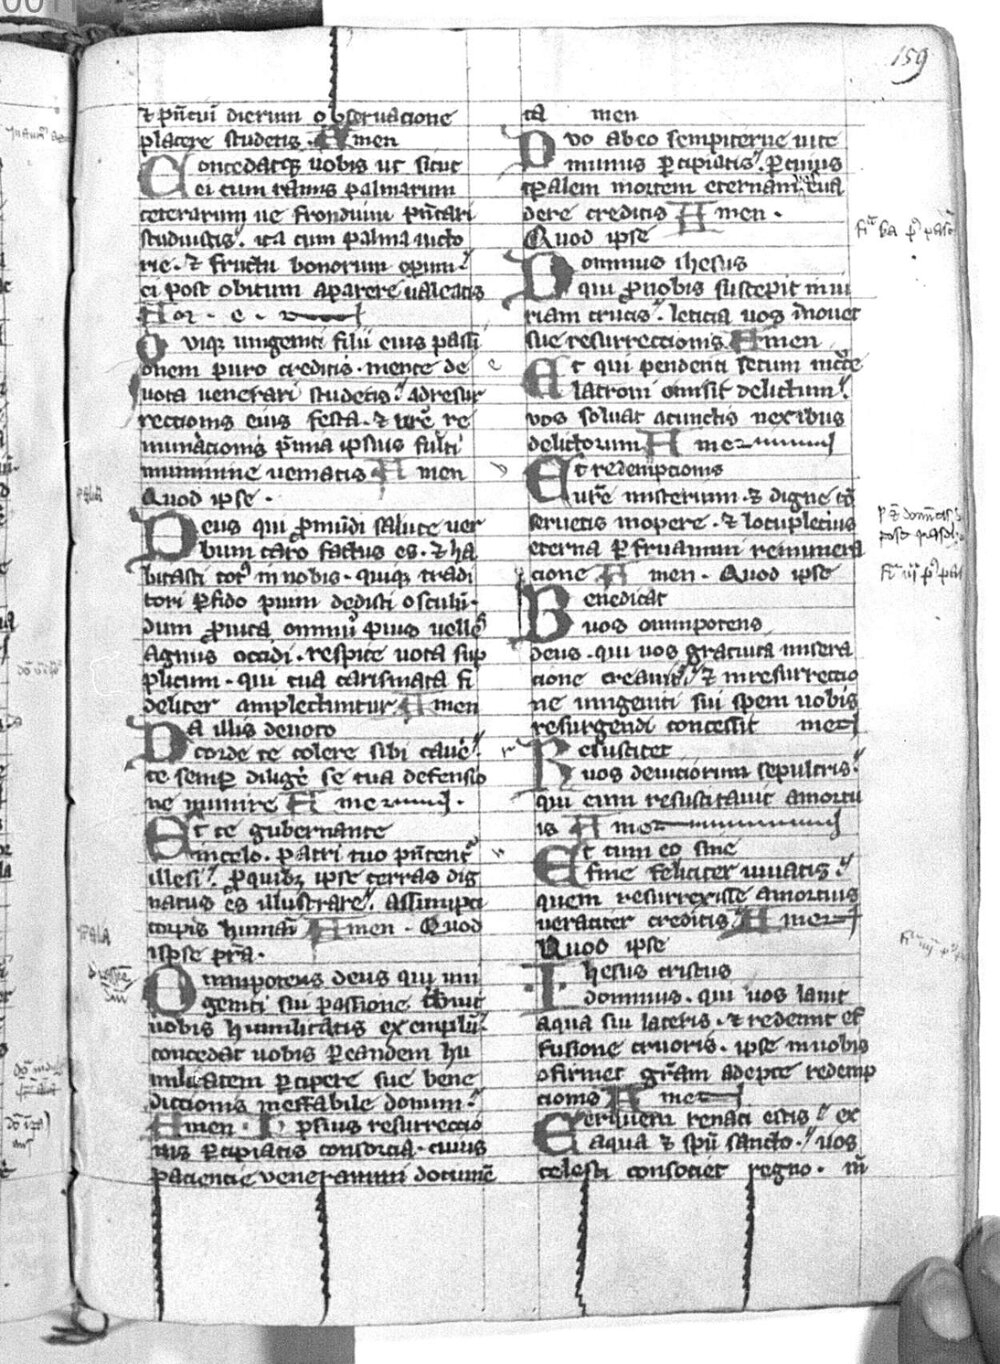 159
⁊ pñtium dierum observacione
placere studetis. Amen
Concedatq; uobis ut sicut
ei cum ramis palmarum
ceterarum ue frondium pñtari
studuistis. ita cum palma uicto
rie. ⁊ fructu bonorum operum
ei post obitum aparere ualeatis
Qui unigeniti filii eius passi
onem puro creditis. mente de
uota uenerari studetis. ad resur
rectionis eius festa. ⁊ ure re
munacionis pima ipsius fulti
munimine ueniatis Amen
Quod ipse.
Deus qui p mundi salute uer
bum caro factus es. ⁊ ha
bitasti in nobis. quiq; tradi
tori pfido pium dedisti osculu.
dum p uita omniu pius uelles
agnus occidi. respice uota sup
plicum. qui tua carismata fi
deliter amplectuntur. Amen
Da illis deuoto
corde te colere sibi caue.
te semp dilige se tua defensio
ne munire Amen.
Et te gubernante
in celo. patri tuo pñtent
illesi. p quibz ipse terras dig
natus es illustrare. assumpti
corpis humani Amen. Quod
ipse pra.
Omnipotens deus qui uni
geniti sui passione tbuit
uobis humilitatis exemplu.
concedat uobis p eandem hu
militatem pcipere sue bene
dictionis ineffabile donum.
Amen. Ipsius resurrectio
nis pcipiatis consorcia. cuius
paciencie ueneramini docume
ta men
Quo ab eo sempiterne uite
munus pcipiatis. p cuius
tpalem mortem eternam uos eua
dere creditis Amen.
Quod ipse
Dominus ihesus
qui p nobis suscepit iniu
riam crucis. leticia uos inouet
sue resurrectionis Amen
Et qui pendenti secum in cce
latroni omisit delictum.
uos soluat a cunctis nexibus
delictorum Amen
Et redempcionis
ure misterium. ⁊ digne co
seruetis in opere. ⁊ locupletius
eterna pfruamini remunera
cione Amen. Quod ipse
Benedicat
uos omnipotens
deus. qui uos gratuita misera
cione creauit. ⁊ in resurrectio
ne unigeniti sui spem uobis
resurgendi concessit men
Resuscitet
uos de uiciorum sepulcris.
qui eum resuscitauit a mortu
is Amen
Et cum eo sine
fine feliciter uiuatis.
quem resurrexisse a mortuis
ueraciter creditis. Amen
Quod ipse
Ihesus cristus
dominus. qui uos lauit
aqua sui lateris. ⁊ redemit ef
fusione cruoris. ipse in uobis
ofirmet gram adepte redemp
cionis Amen
Per quem renati estis ex
aqua ⁊ spu sancto. uos
celesti consociet regno.